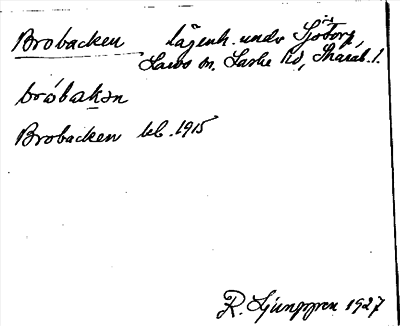 Brobacken lägenh. under Sjöberg,
Laws sn. Laske hd, Skarab. l.
bröbakən
Brobacken kb. 1915
R. Ljunggren 1927